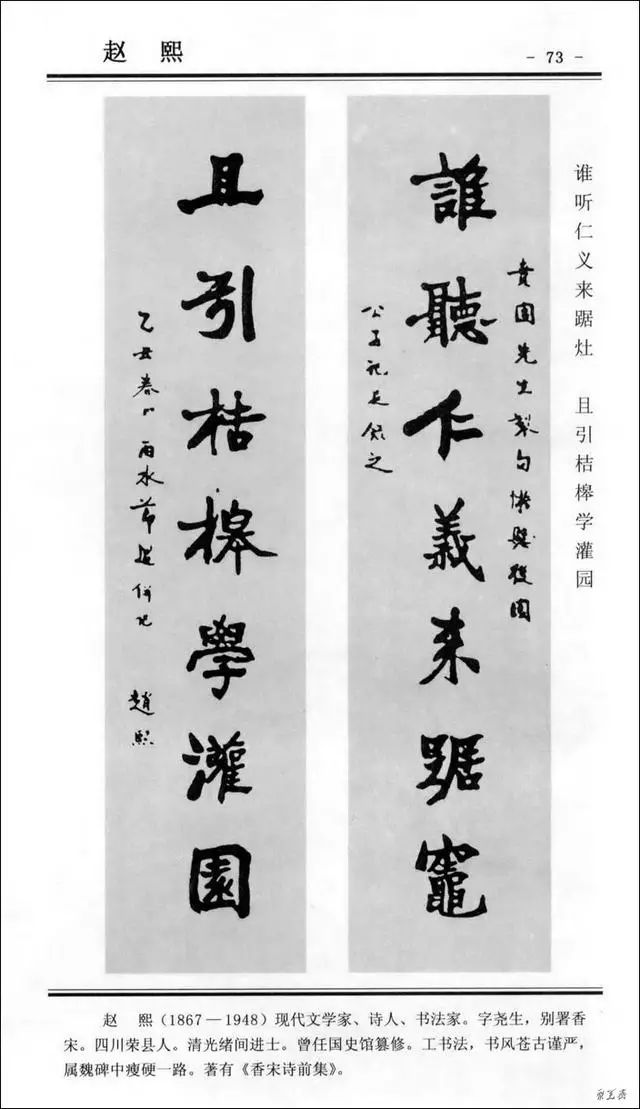 赵 熙
- 73 -
谁听仁义来踞灶 且引桔槔学灌园
誰聽仁義来踞竈
賁園先生製句懒悬後園
公子祀足飲之
且引桔槔學灌園
乙丑春 雨水節後併記 趙熙
赵 熙(1867—1948)现代文学家、诗人、书法家。字尧生,别署香
宋。四川荣县人。清光绪间进士。曾任国史馆篡修。工书法,书风苍古谨严,
属魏碑中瘦硬一路。著有《香宋诗前集》。